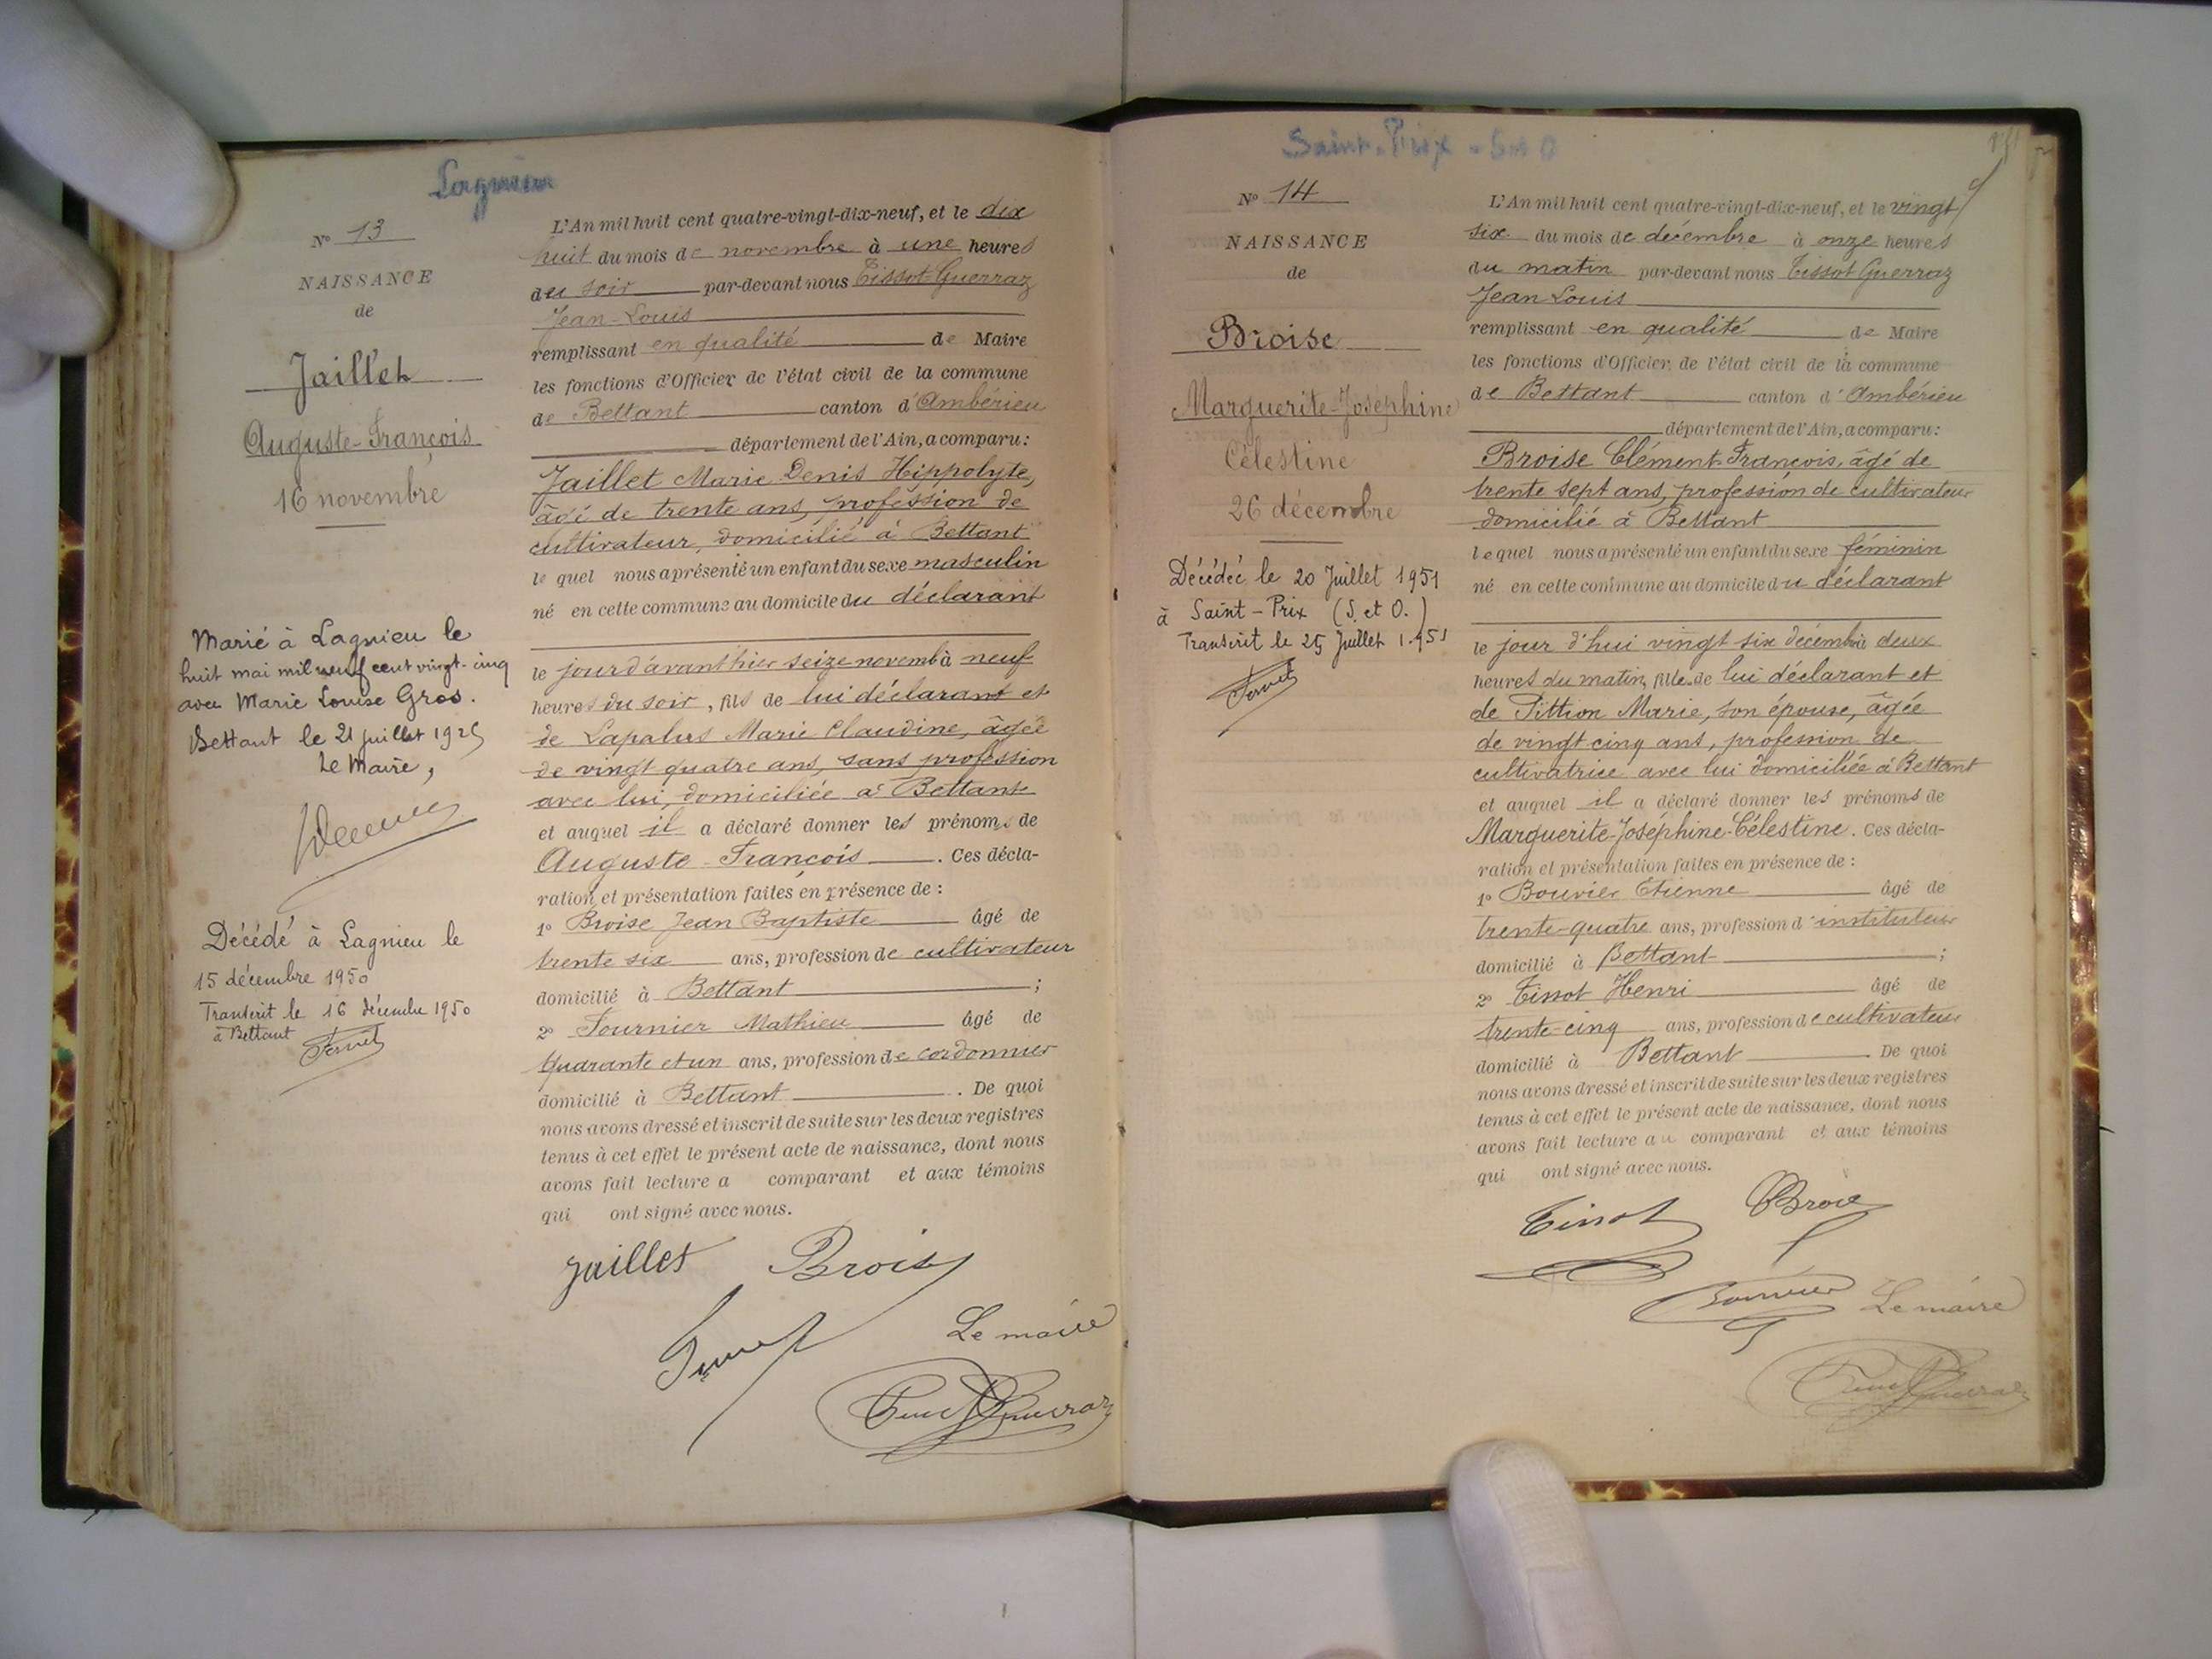 Lagnieu
Nº 13
NAISSANCE
de
Jaillet
Auguste-François
16 novembre
Marié à Lagnieu le
huit mai mil neuf cent vingt-cinq
avec Marie Louise Gros.
Bettant le 21 juillet 1925
Le Maire,
Décédé à Lagnieu le
15 décembre 1950
Transcrit le 16 décembre 1950
à Bettant
L'An mil huit cent quatre-vingt-dix-neuf, et le dix
huit du mois de novembre à une heures
du soir par-devant nous Tissot-Guerraz
Jean-Louis
remplissant en qualité de Maire
les fonctions d'Officier de l'état civil de la commune
de Bettant canton d'Ambérieu
département de l'Ain, a comparu:
Jaillet Marie Denis Hippolyte,
âgé de trente ans, profession de
cultivateur, domicilié à Bettant
lequel nous a présenté un enfant du sexe masculin
né en cette commune au domicile du déclarant
le jour d'avant hier seize novemb à neuf
heures du soir, fils de lui déclarant et
de Lapalus Marie Claudine, âgée
de vingt quatre ans, sans profession
avec lui, domiciliée à Bettant
et auquel il a déclaré donner les prénoms de
Auguste François. Ces décla-
ration et présentation faites en présence de :
1º Broise Jean Baptiste âgé de
trente six ans, profession de cultivateur
domicilié à Bettant ;
2º Fournier Mathieu âgé de
quarante et un ans, profession de cordonnier
domicilié à Bettant. De quoi
nous avons dressé et inscrit de suite sur les deux registres
tenus à cet effet le présent acte de naissance, dont nous
avons fait lecture a comparant et aux témoins
qui ont signé avec nous.
Jaillet Broise
Le maire
Saint-Prix - S et O
Nº 14
NAISSANCE
de
Broise
Marguerite-Joséphine
Célestine
26 décembre
Décédée le 20 Juillet 1951
à Saint-Prix (S. et O.)
Transcrit le 25 Juillet 1951
L'An mil huit cent quatre-vingt-dix-neuf, et le vingt
six du mois de décembre à onze heures
du matin par-devant nous Tissot Guerraz
Jean Louis
remplissant en qualité de Maire
les fonctions d'Officier de l'état civil de la commune
de Bettant canton d'Ambérieu
département de l'Ain, a comparu:
Broise Clément-François, âgé de
trente sept ans, profession de cultivateur
domicilié à Bettant
lequel nous a présenté un enfant du sexe féminin
né en cette commune au domicile du déclarant
le jour d'hui vingt six décembre deux
heures du matin, fille de lui déclarant et
de Pittion Marie, son épouse, âgée
de vingt cinq ans, profession de
cultivatrice avec lui domiciliée à Bettant
et auquel il a déclaré donner les prénoms de
Marguerite-Joséphine-Célestine. Ces décla-
ration et présentation faites en présence de :
1º Bouvier Étienne âgé de
trente-quatre ans, profession d'instituteur
domicilié à Bettant ;
2º Tissot Henri âgé de
trente-cinq ans, profession de cultivateur
domicilié à Bettant. De quoi
nous avons dressé et inscrit de suite sur les deux registres
tenus à cet effet le présent acte de naissance, dont nous
avons fait lecture au comparant et aux témoins
qui ont signé avec nous.
Tissot Broise
Bouvier Le maire